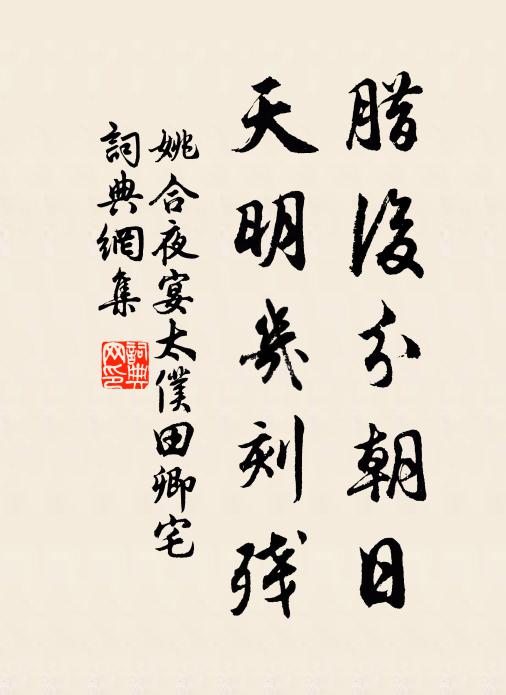 腊後分朝日
天明幾刻残
姚合夜宴太僕田卿宅
詞典網集
詞典
网印